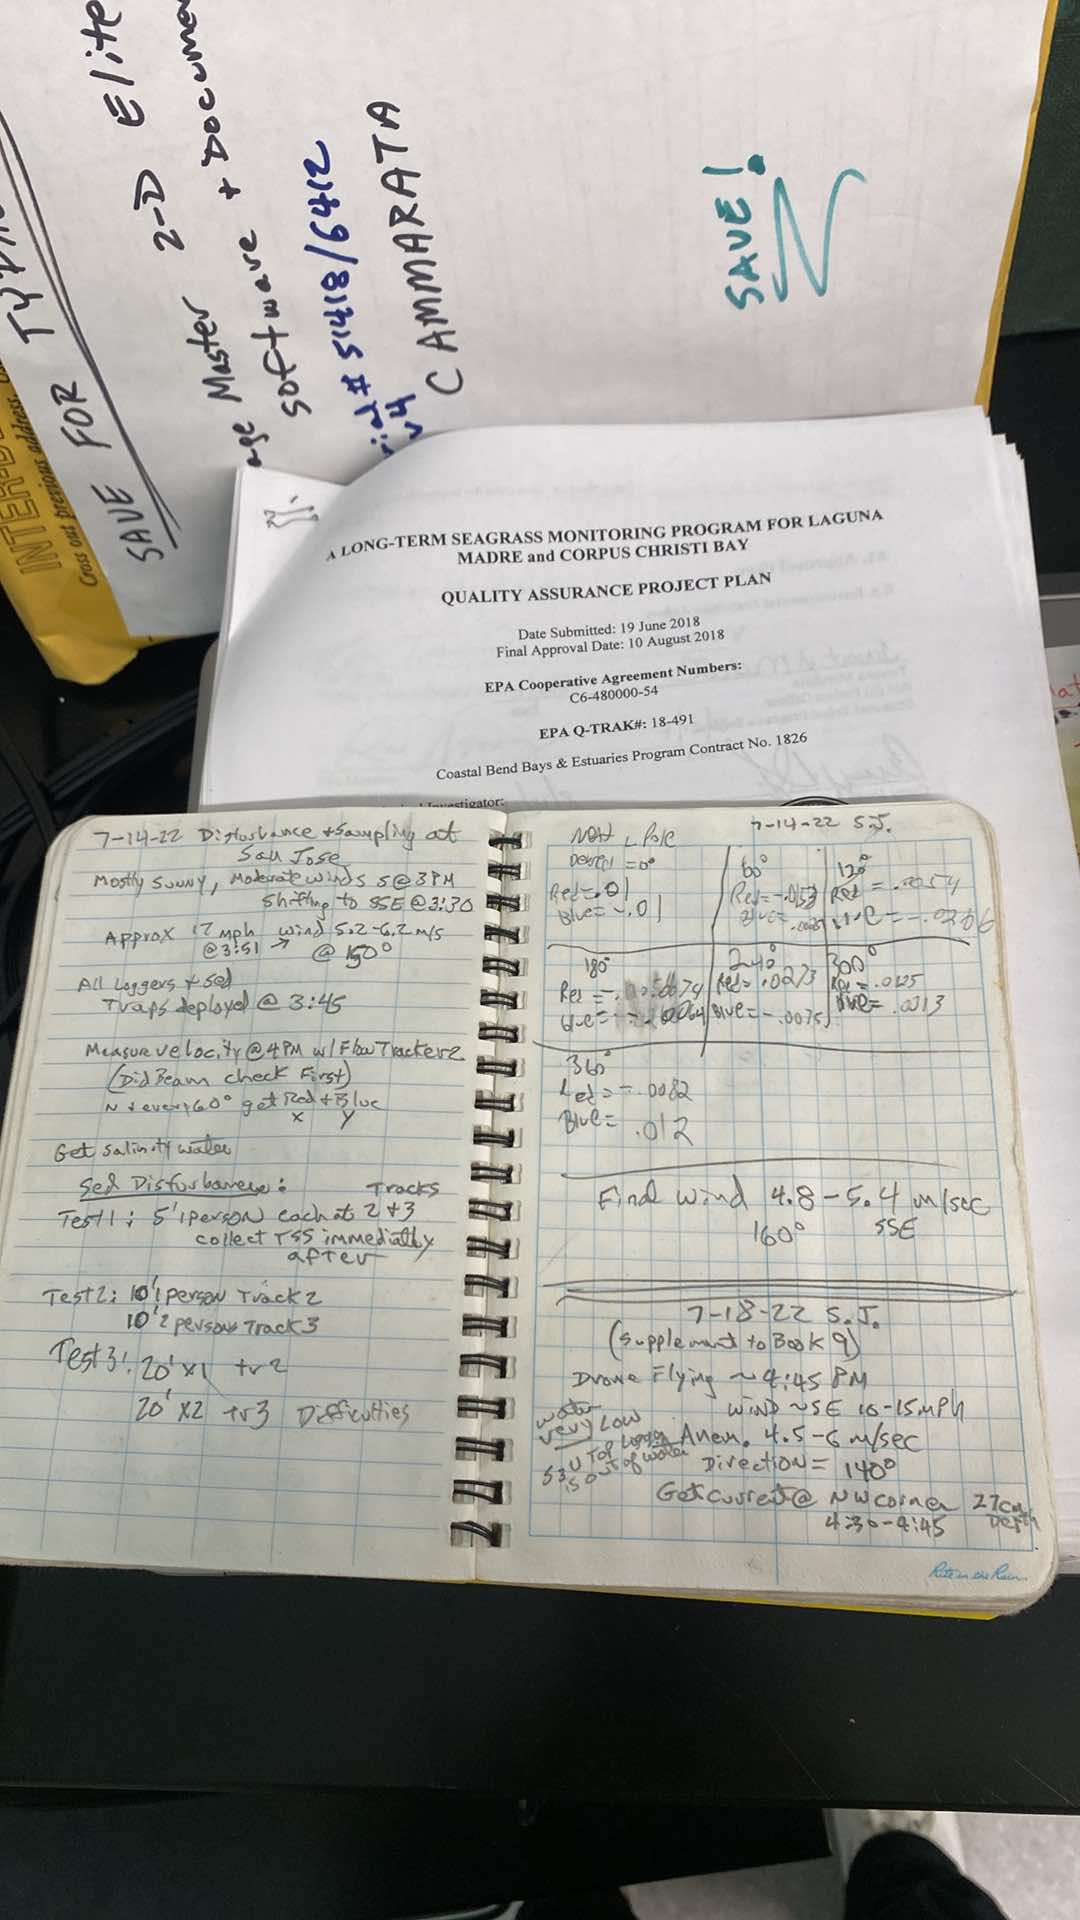 INTER-D
Cross out previous address.
SAVE FOR TYPIN
2-D Elite
age Master + Docume
software
ial# 51418/6412
v4
CAMMARATA
SAVE!
A LONG-TERM SEAGRASS MONITORING PROGRAM FOR LAGUNA
MADRE and CORPUS CHRISTI BAY
QUALITY ASSURANCE PROJECT PLAN
Date Submitted: 19 June 2018
Final Approval Date: 10 August 2018
EPA Cooperative Agreement Numbers:
C6-480000-54
EPA Q-TRAK#: 18-491
Coastal Bend Bays & Estuaries Program Contract No. 1826
Investigator:
7-14-22 Disturbance + Sampling at
San Jose
Mostly Sunny, Moderate winds S@3PM
Shifting to SSE@3:30
Approx 17 mph wind 5.2-6.2 m/s
@3:51 → @ 150°
All Loggers + sed
Traps deployed @ 3:45
Measure velocity @ 4PM w/ FlowTracker2
(Did Beam check First)
N + every 60° get Red + Blue
x y
Get salinity water
Sed Disturbance: Tracks
Test 1: 5' 1 person each at 2 + 3
collect TSS immediately
after
Test 2: 10' 1 person Track 2
10' 2 persons Track 3
Test 3: 20' x1 tr 2
20' x2 tr 3 Difficulties
7-14-22 S.J.
Pole
= 0°
Red = .01
Blue = -.01
60°
Red =
Blue =
120°
Red = .0054
180°
Red =
Blue =
240°
Red = .0273
Blue = -.0075
300°
Red = .0125
Blue = .0013
360°
Red = -.0082
Blue = .012
Final wind 4.8-5.4 m/sec
160° SSE
7-18-22 S.J.
(supplement to Book 9)
Drone Flying ~4:45 PM
wind ~SE 10-15 mph
water
very Low
Anem. 4.5-6 m/sec
Top Logger
is out of water
Direction = 140°
Get current @ NW corner 27cm
4:30-4:45 Depth
Rite in the Rain